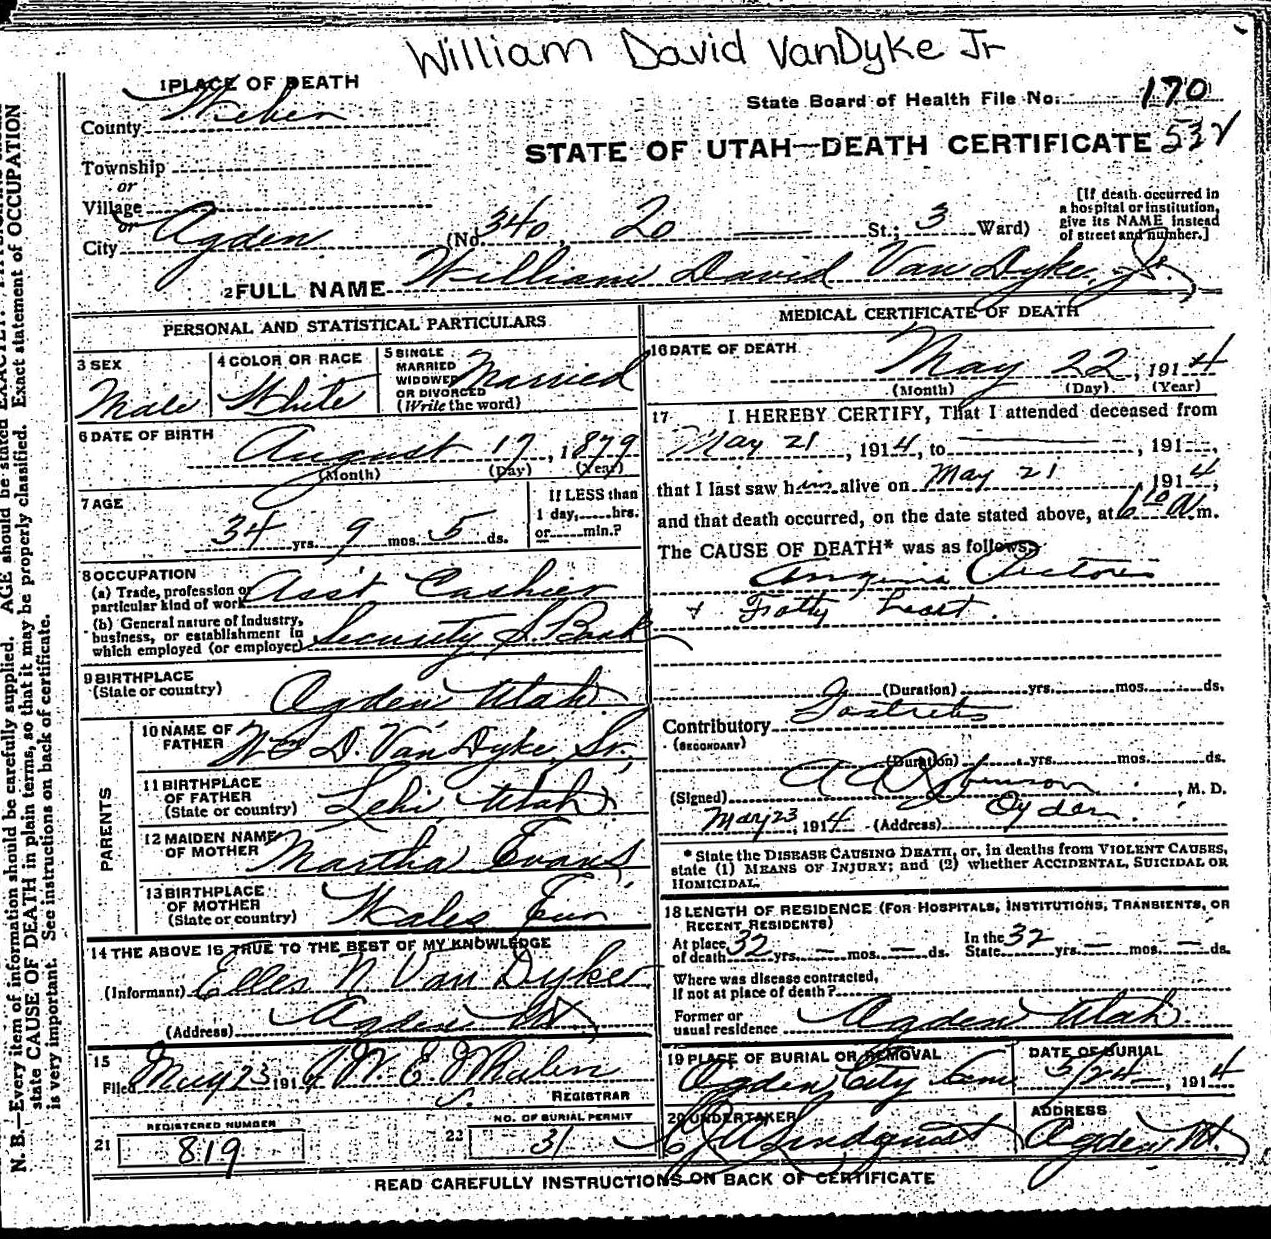 William David VanDyke Jr
1 PLACE OF DEATH
State Board of Health File No. 170
County Weber
STATE OF UTAH—DEATH CERTIFICATE 532
Township
or
Village
or
City Ogden (No. 340, 20 St.; 3 Ward)
[If death occurred in
a hospital or institution,
give its NAME instead
of street and number.]
2 FULL NAME William David Van Dyke, Jr.
PERSONAL AND STATISTICAL PARTICULARS
3 SEX
Male
4 COLOR OR RACE
White
5 SINGLE
MARRIED
WIDOWED
OR DIVORCED
(Write the word)
Married
6 DATE OF BIRTH
August 17, 1879
(Month) (Day) (Year)
7 AGE
34 yrs. 9 mos. 5 ds.
If LESS than
1 day, hrs.
or min.?
8 OCCUPATION
(a) Trade, profession or
particular kind of work Ass't Cashier
(b) General nature of Industry,
business, or establishment in
which employed (or employer) Security S. Bank
9 BIRTHPLACE
(State or country) Ogden, Utah.
PARENTS
10 NAME OF
FATHER Wm D. Van Dyke, Sr.
11 BIRTHPLACE
OF FATHER
(State or country) Lehi, Utah
12 MAIDEN NAME
OF MOTHER Martha Evans
13 BIRTHPLACE
OF MOTHER
(State or country) Wales Eur
14 THE ABOVE IS TRUE TO THE BEST OF MY KNOWLEDGE
(Informant) N. Van Dyke
(Address) Ogden Ut
15
Filed May 23 1914
REGISTRAR
REGISTERED NUMBER
21 819
NO. OF BURIAL PERMIT
22 31
MEDICAL CERTIFICATE OF DEATH
16 DATE OF DEATH
May 22, 1914
(Month) (Day) (Year)
17 I HEREBY CERTIFY, That I attended deceased from
May 21, 1914, to , 191 ,
that I last saw him alive on May 21 1914,
and that death occurred, on the date stated above, at 6 10 A m.
The CAUSE OF DEATH* was as follows:
Angina Pectoris
+ Fatty heart.
(Duration) yrs. mos. ds.
Contributory Gastritis
(SECONDARY)
(Duration) yrs. mos. ds.
(Signed) , M. D.
May 23, 1914 (Address) Ogden.
* State the DISEASE CAUSING DEATH, or, in deaths from VIOLENT CAUSES,
state (1) MEANS OF INJURY; and (2) whether ACCIDENTAL, SUICIDAL OR
HOMICIDAL.
18 LENGTH OF RESIDENCE (FOR HOSPITALS, INSTITUTIONS, TRANSIENTS, OR
RECENT RESIDENTS)
At place
of death 32 yrs. — mos. — ds. In the
State 32 yrs. — mos. — ds.
Where was disease contracted,
if not at place of death?
Former or
usual residence Ogden Utah
19 PLACE OF BURIAL OR REMOVAL
Ogden City Cem
DATE OF BURIAL
5/24, 1914
20 UNDERTAKER
Lindquist
ADDRESS
Ogden, Ut.
READ CAREFULLY INSTRUCTIONS ON BACK OF CERTIFICATE
N. B.—Every item of information should be carefully supplied. AGE should be stated EXACTLY.
state CAUSE OF DEATH in plain terms, so that it may be properly classified. Exact statement of OCCUPATION
is very important. See instructions on back of certificate.